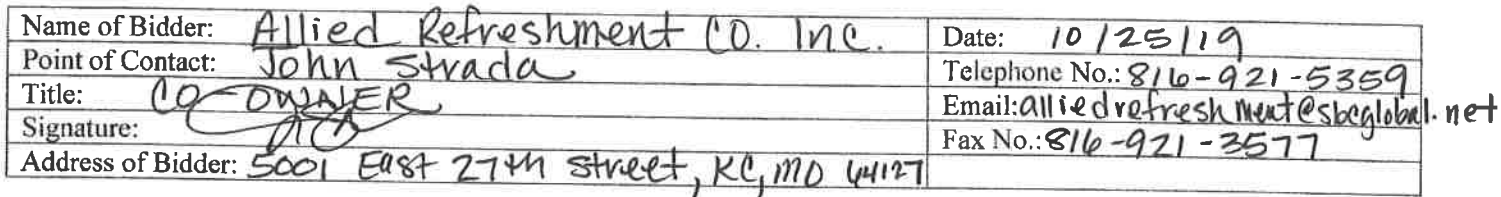 Name of Bidder: Allied Refreshment CO. Inc. Date: 10/25/19
Point of Contact: John Strada Telephone No.: 816-921-5359
Title: CO-OWNER Email: alliedrefreshment@sbcglobal.net
Signature: Fax No.: 816-921-3577
Address of Bidder: 5001 East 27th Street, KC, MO 64127